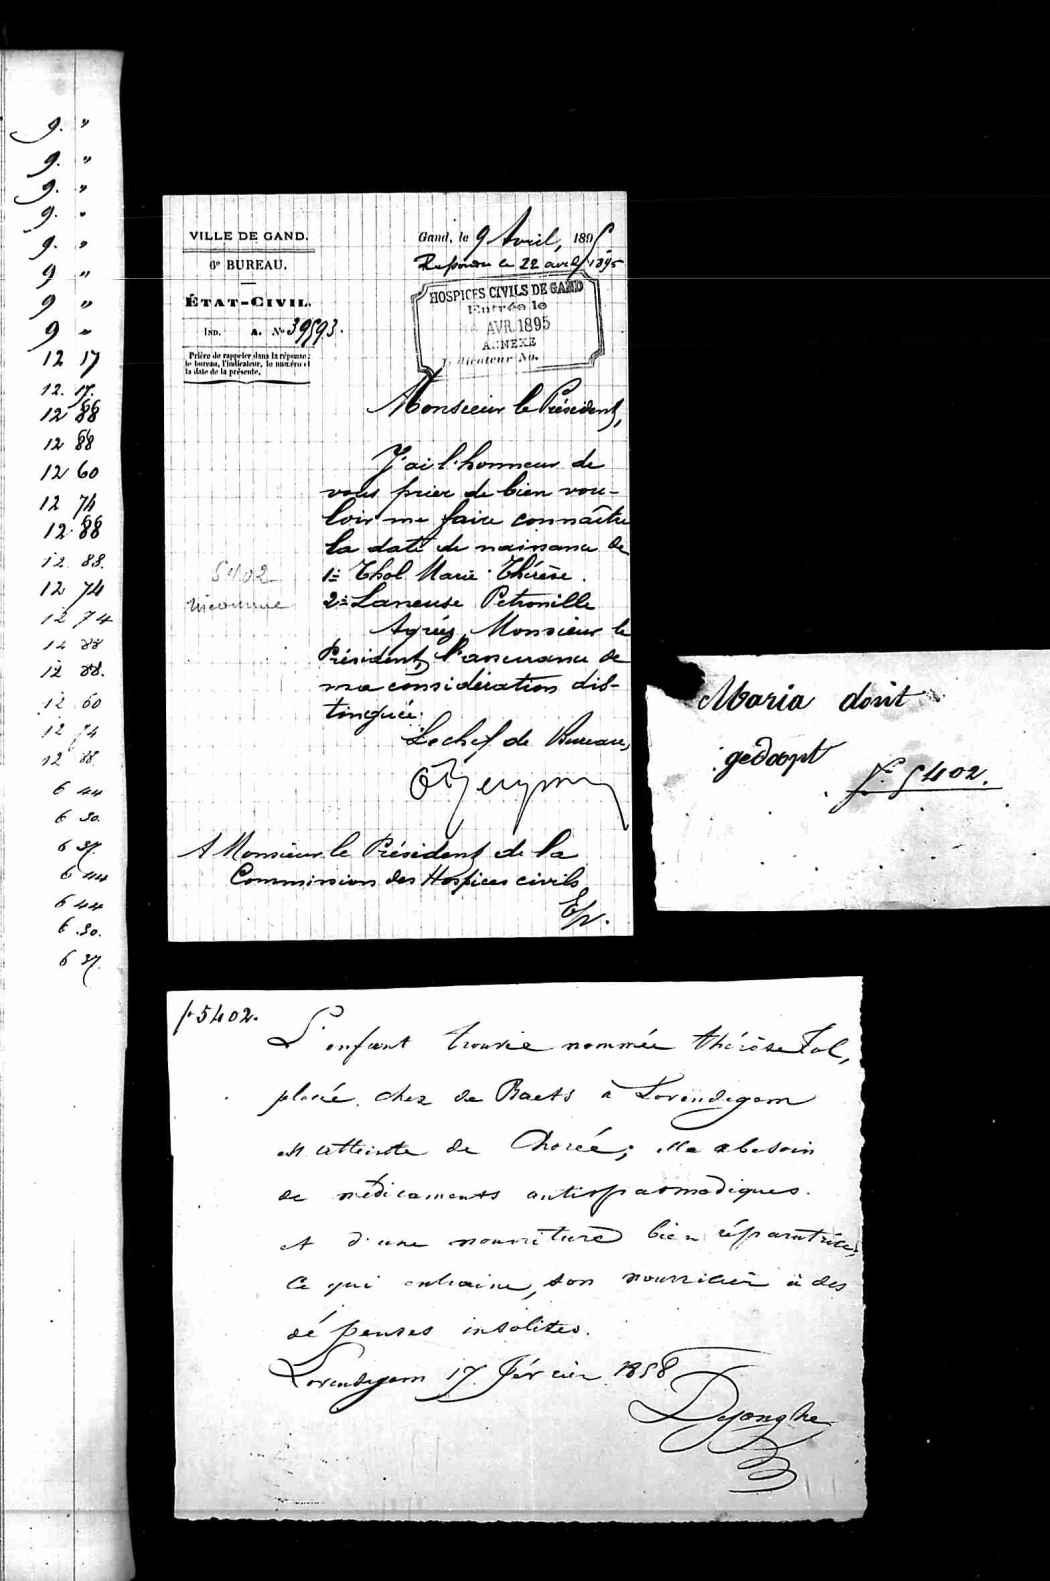 9. "
9. "
9. "
9. "
9. "
9 "
9 "
9 "
12 17
12. 17.
12 88
12 88
12 60
12 74
12 88
12 88.
12 74
12 74
12 88
12 88.
12 60
12 74
12 88
6 44
6 30.
6 37.
6 44
6 44
6 30.
6 37.
VILLE DE GAND.
6e BUREAU.
ÉTAT-CIVIL.
IND. A. No 39593.
Prière de rappeler dans la réponse:
le bureau, l'indicateur, le numéro et
la date de la présente.
Gand, le 9 Avril, 1895
Répondu le 22 avril 1895
HOSPICES CIVILS DE GAND
Entrée le
AVR. 1895
ANNEXE
Indicateur No.
Monsieur le Président,
J'ai l'honneur de
vous prier de bien vou-
loir me faire connaître
la date de naissance de
1º Thol Marie Thérèse.
2º Laneuse Petronille
Agréez, Monsieur le
Président, l'assurance de
ma considération dis-
tinguée.
Le chef de Bureau,
5402
inconnue
A Monsieur le Président de la
Commission des Hospices civils
Maria dont
gedoopt
fo 5402.
fo 5402.
L'enfant trouvée nommée thérèse Tol,
placée chez de Baets à Lovendegem
est atteinte de Chorée; elle a besoin
de médicaments antispasmodiques.
et d'une nourriture bien réparatrice,
ce qui entraine, son nourricier à des
dépenses insolites.
Lovendegem 17 février 1858
Dejonghe